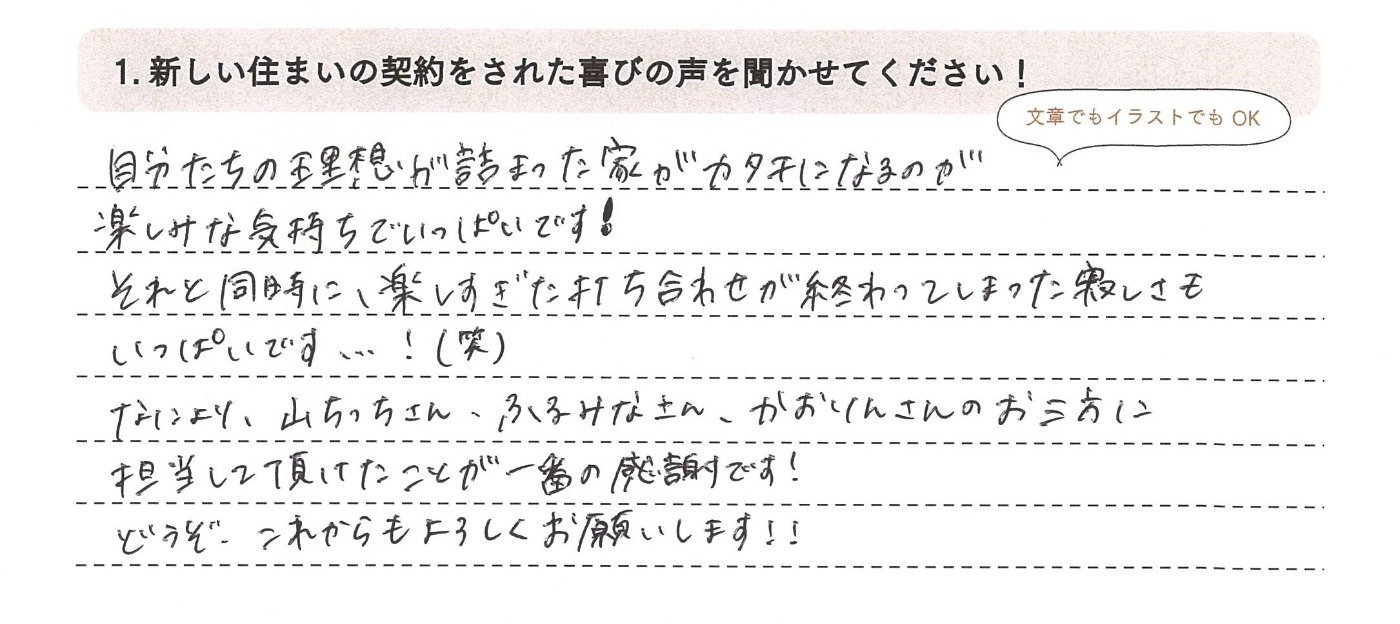 1. 新しい住まいの契約をされた喜びの声を聞かせてください！
文章でもイラストでも OK
自分たちの理想が詰まった家がカタチになるのが
楽しみな気持ちでいっぱいです！
それと同時に、楽しすぎた打ち合わせが終わってしまった寂しさも
いっぱいです…！(笑)
なにより、山ちっちさん、ふるみなさん、かおりんさんのお三方に
担当して頂けたことが一番の感謝です！
どうぞ、これからもよろしくお願いします！！